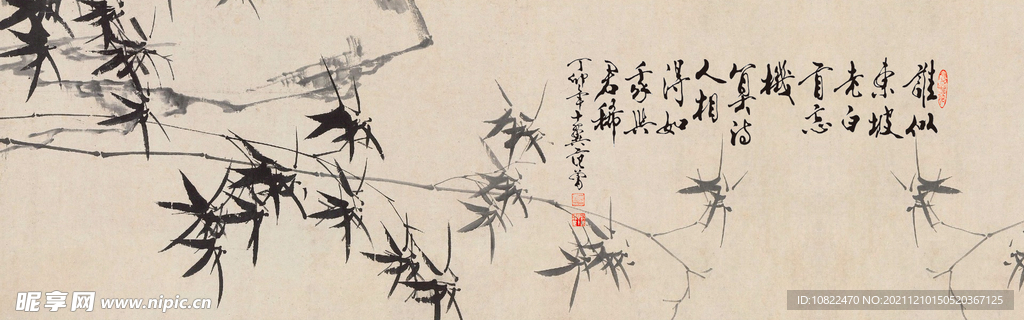 誰似
東坡
老白
首忘
機
算詩
人相
得如
我與
君稀
丁卯年十翼范曾
昵享网 www.nipic.cn
ID:10822470 NO:20211210150520367125